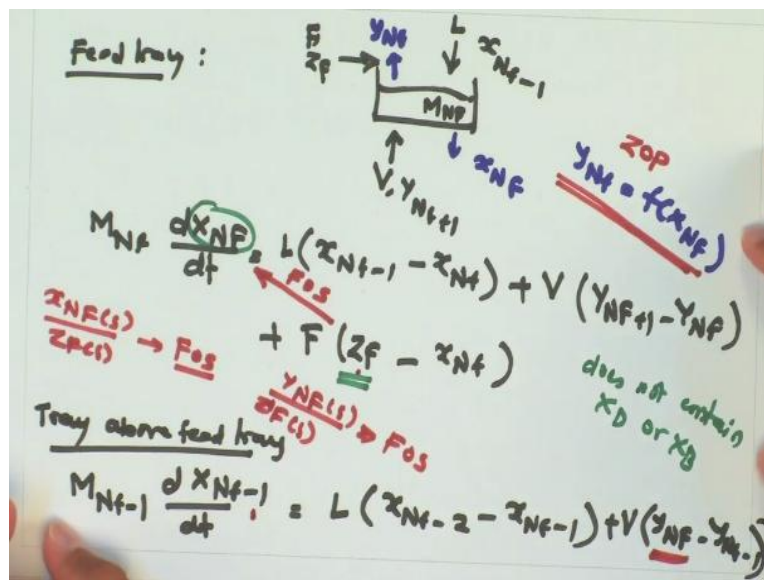 Feed tray :
F
z_F
y_Nf
L
x_{Nf-1}
M_NF
x_NF
V, y_{Nf+1}
ZOP
y_Nf = f(x_NF)
M_NF dx_NF/dt = L(x_{NF-1} - x_Nf) + V(y_{NF+1} - y_NF)
FOS
+ F(z_F - x_Nf)
x_NF(s)/z_F(s) → FOS
y_NF(s)/z_F(s) ⇒ FOS
does not contain
x_D or x_B
Tray above feed tray
M_{Nf-1} dx_{Nf-1}/dt = L(x_{Nf-2} - x_{Nf-1}) + V(y_NF - y_{Nf-1})